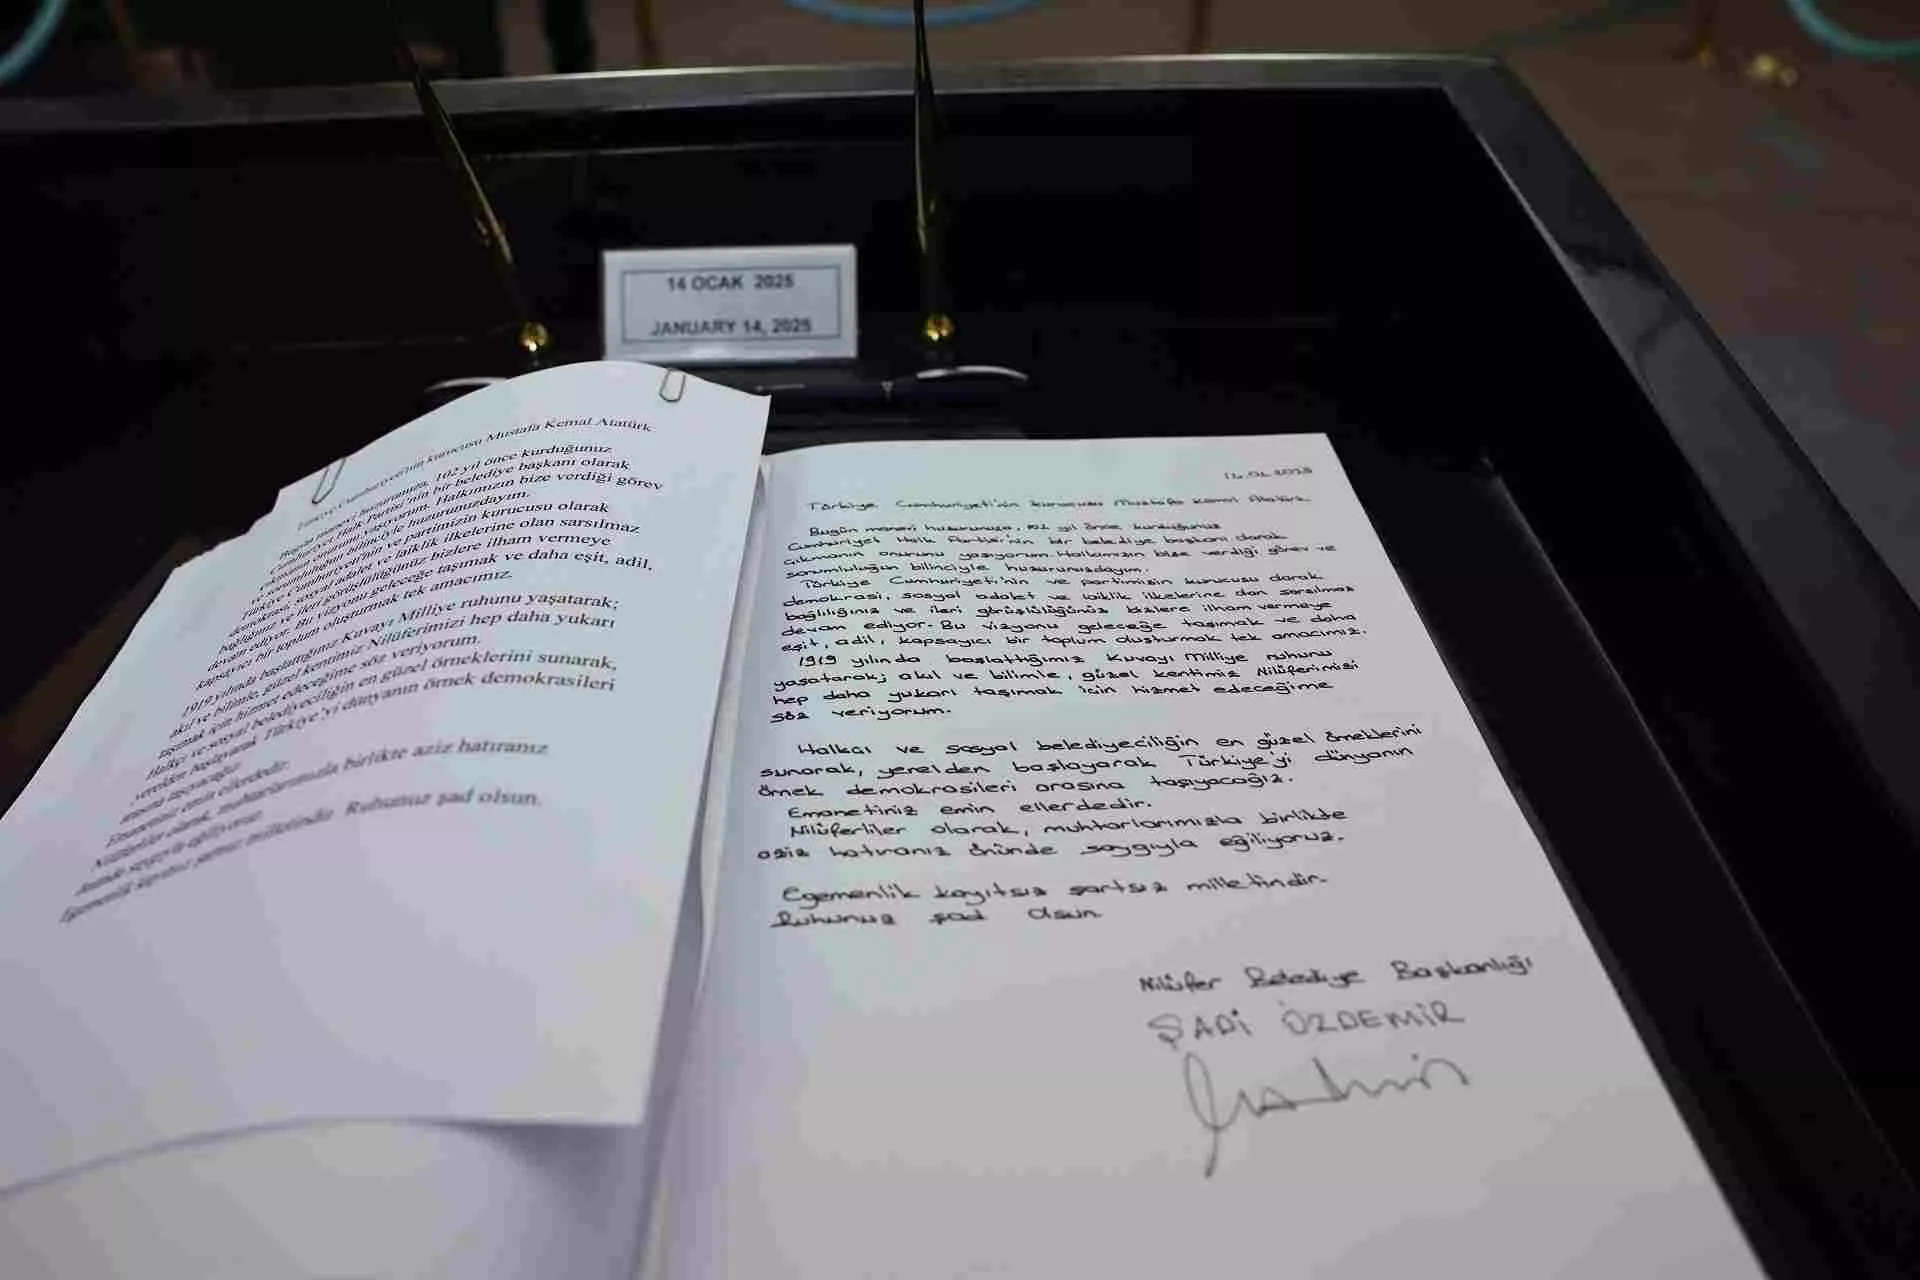 14 OCAK 2025
JANUARY 14, 2025
Türkiye Cumhuriyeti'nin kurucusu Mustafa Kemal Atatürk
Bugün manevi huzurunuza, 102 yıl önce kurduğunuz
Cumhuriyet Halk Partisi'nin bir belediye başkanı olarak
çıkmanın onurunu yaşıyorum. Halkımızın bize verdiği görev
ve sorumluluğun bilinciyle huzurunuzdayım.
Türkiye Cumhuriyeti'nin ve partimizin kurucusu olarak
demokrasi, sosyal adalet ve laiklik ilkelerine olan sarsılmaz
bağlılığınız ve ileri görüşlülüğünüz bizlere ilham vermeye
devam ediyor. Bu vizyonu geleceğe taşımak ve daha eşit, adil,
kapsayıcı bir toplum oluşturmak tek amacımız.
1919 yılında başlattığınız Kuvayı Milliye ruhunu yaşatarak;
akıl ve bilimle, güzel kentimiz Nilüferimizi hep daha yukarı
taşımak için hizmet edeceğime söz veriyorum.
Halkçı ve sosyal belediyeciliğin en güzel örneklerini sunarak,
yerelden başlayarak Türkiye'yi dünyanın örnek demokrasileri
arasına taşıyacağız.
Emanetiniz emin ellerdedir.
Nilüferliler olarak, muhtarlarımızla birlikte aziz hatıranız
önünde saygıyla eğiliyoruz.
Egemenlik kayıtsız şartsız milletindir. Ruhunuz şad olsun.
14.01.2025
Türkiye Cumhuriyeti'nin kurucusu Mustafa Kemal Atatürk
Bugün manevi huzurunuza, 102 yıl önce kurduğunuz
Cumhuriyet Halk Partisi'nin bir belediye başkanı olarak
çıkmanın onurunu yaşıyorum. Halkımızın bize verdiği görev ve
sorumluluğun bilinciyle huzurunuzdayım.
Türkiye Cumhuriyeti'nin ve partimizin kurucusu olarak
demokrasi, sosyal adalet ve laiklik ilkelerine olan sarsılmaz
bağlılığınız ve ileri görüşlülüğünüz bizlere ilham vermeye
devam ediyor. Bu vizyonu geleceğe taşımak ve daha
eşit, adil, kapsayıcı bir toplum oluşturmak tek amacımız.
1919 yılında başlattığımız Kuvayı Milliye ruhunu
yaşatarak; akıl ve bilimle, güzel kentimiz Nilüferimizi
hep daha yukarı taşımak için hizmet edeceğime
söz veriyorum.
Halkçı ve sosyal belediyeciliğin en güzel örneklerini
sunarak, yerelden başlayarak Türkiye'yi dünyanın
örnek demokrasileri arasına taşıyacağız.
Emanetiniz emin ellerdedir.
Nilüferliler olarak, muhtarlarımızla birlikte
aziz hatıranız önünde saygıyla eğiliyoruz.
Egemenlik kayıtsız şartsız milletindir.
Ruhunuz şad olsun
Nilüfer Belediye Başkanlığı
ŞADİ ÖZDEMİR